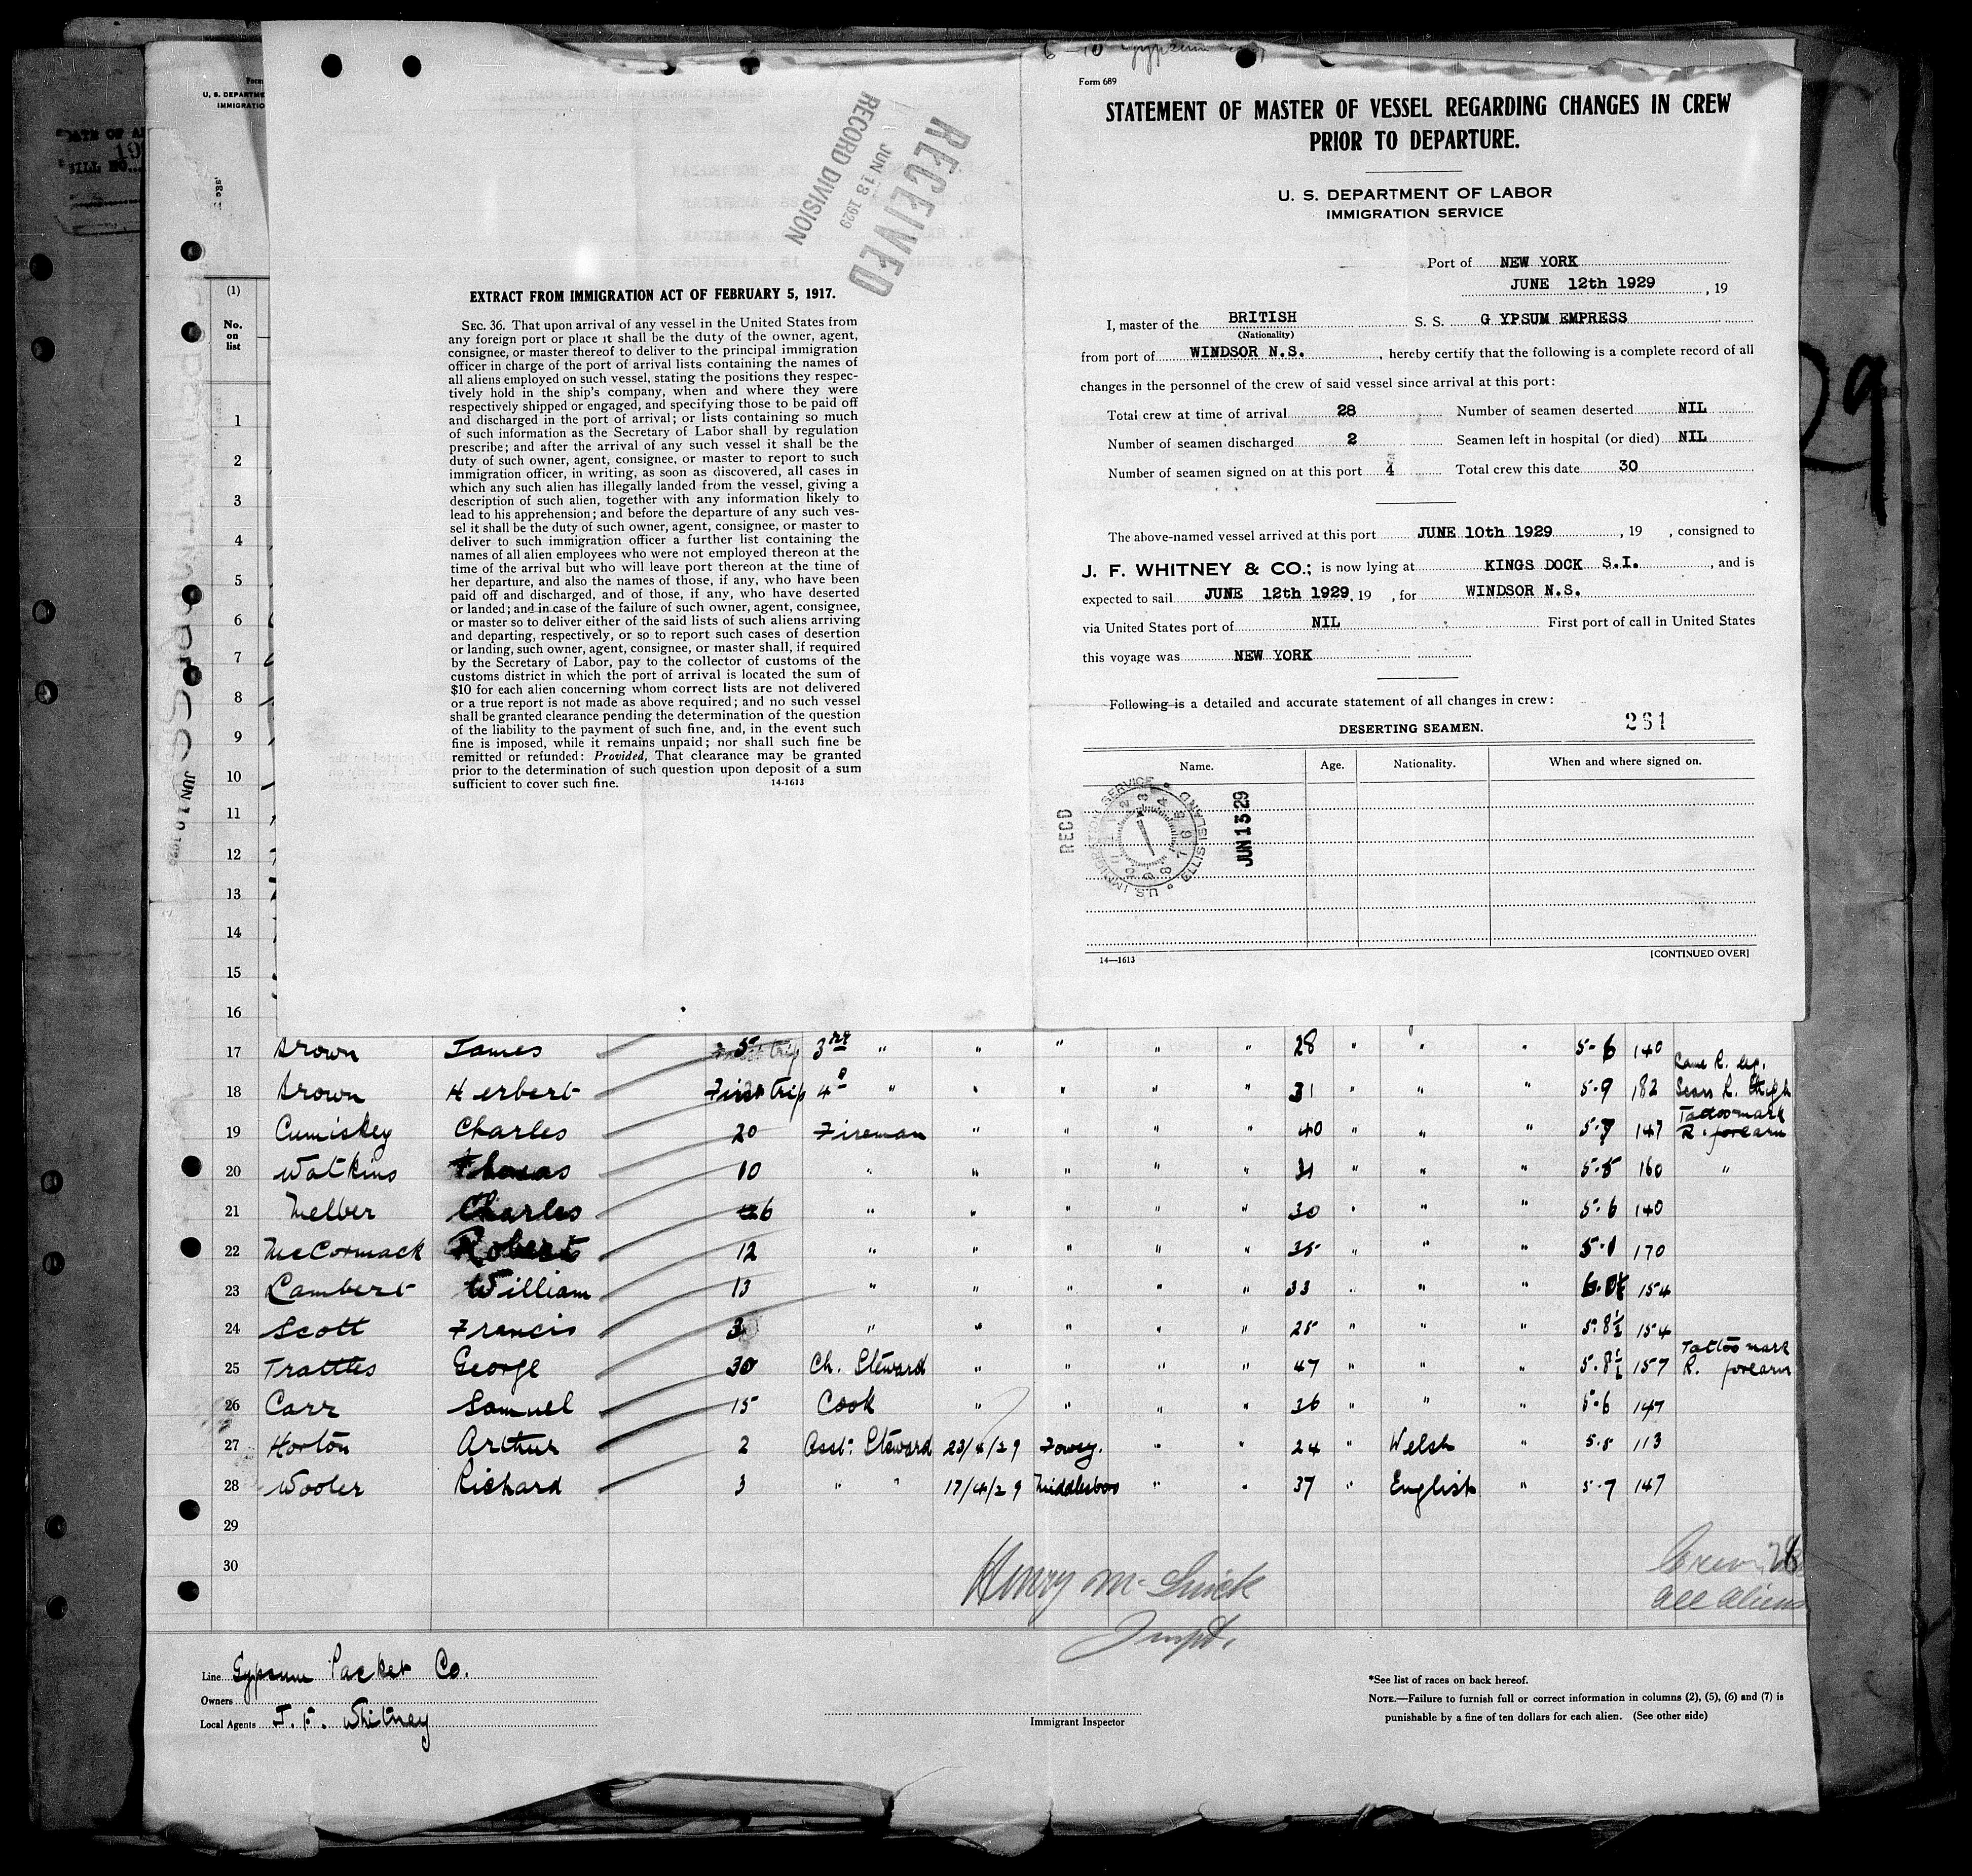 Form 689
STATEMENT OF MASTER OF VESSEL REGARDING CHANGES IN CREW
PRIOR TO DEPARTURE.
U. S. DEPARTMENT OF LABOR
IMMIGRATION SERVICE
Port of NEW YORK
JUNE 12th 1929, 19
I, master of the BRITISH S. S. G YPSUM EMPRESS
(Nationality)
from port of WINDSOR N.S., hereby certify that the following is a complete record of all
changes in the personnel of the crew of said vessel since arrival at this port:
Total crew at time of arrival 28 Number of seamen deserted NIL
Number of seamen discharged 2 Seamen left in hospital (or died) NIL
Number of seamen signed on at this port 4 Total crew this date 30
The above-named vessel arrived at this port JUNE 10th 1929, 19 , consigned to
J. F. WHITNEY & CO.; is now lying at KINGS DOCK S.I., and is
expected to sail JUNE 12th 1929, 19 , for WINDSOR N.S.
via United States port of NIL First port of call in United States
this voyage was NEW YORK
Following is a detailed and accurate statement of all changes in crew:
DESERTING SEAMEN. 261
Name. Age. Nationality. When and where signed on.
RECD
U.S. IMMIGRATION SERVICE ELLIS ISLAND
JUN 13 29
14—1613 [CONTINUED OVER]
RECEIVED
JUN 18 1929
RECORD DIVISION
EXTRACT FROM IMMIGRATION ACT OF FEBRUARY 5, 1917.
SEC. 36. That upon arrival of any vessel in the United States from
any foreign port or place it shall be the duty of the owner, agent,
consignee, or master thereof to deliver to the principal immigration
officer in charge of the port of arrival lists containing the names of
all aliens employed on such vessel, stating the positions they respec-
tively hold in the ship's company, when and where they were
respectively shipped or engaged, and specifying those to be paid off
and discharged in the port of arrival; or lists containing so much
of such information as the Secretary of Labor shall by regulation
prescribe; and after the arrival of any such vessel it shall be the
duty of such owner, agent, consignee, or master to report to such
immigration officer, in writing, as soon as discovered, all cases in
which any such alien has illegally landed from the vessel, giving a
description of such alien, together with any information likely to
lead to his apprehension; and before the departure of any such ves-
sel it shall be the duty of such owner, agent, consignee, or master to
deliver to such immigration officer a further list containing the
names of all alien employees who were not employed thereon at the
time of the arrival but who will leave port thereon at the time of
her departure, and also the names of those, if any, who have been
paid off and discharged, and of those, if any, who have deserted
or landed; and in case of the failure of such owner, agent, consignee,
or master so to deliver either of the said lists of such aliens arriving
and departing, respectively, or so to report such cases of desertion
or landing, such owner, agent, consignee, or master shall, if required
by the Secretary of Labor, pay to the collector of customs of the
customs district in which the port of arrival is located the sum of
$10 for each alien concerning whom correct lists are not delivered
or a true report is not made as above required; and no such vessel
shall be granted clearance pending the determination of the question
of the liability to the payment of such fine, and, in the event such
fine is imposed, while it remains unpaid; nor shall such fine be
remitted or refunded: Provided, That clearance may be granted
prior to the determination of such question upon deposit of a sum
sufficient to cover such fine. 14-1613
(1)
No.
on
list
1
2
3
4
5
6
7
8
9
10
11
12
13
14
15
16
17 Brown James 5 3rd " " " " " 28 " " 5-6 140
18 Brown Herbert First trip 4 " " " " " 31 " " " 5-9 182 Scars R. thigh
19 Cumiskey Charles 20 Fireman " " " " 40 " " " 5-7 147 Tattoo mark R. forearm
20 Watkins Thomas 10 " " " " " 31 " " " 5-5 160 "
21 Melber Charles 26 " " " " " 30 " " " 5-6 140
22 McCormack Robert 12 " " " " " 35 " " " 5-1 170
23 Lambert William 13 " " " " " 33 " " " 154
24 Scott Francis 3 " " " " " 25 " " " 5-8½ 154
25 Trattles George 30 Ch. Steward " " " " 47 " " " 5-8½ 157 Tattoo mark R. forearm
26 Carr Samuel 15 Cook " " " " 36 " " " 5-6 147
27 Horton Arthur 2 Asst. Steward 23/4/29 Fowey. " " 24 " Welsh " 5-5 113
28 Wooler Richard 3 " " 17/4/29 Middlesboro " " 37 " English " 5-7 147
29
30
Henry McGuick
Inspt.
Crew 28
all aliens
Line Gypsum Packet Co.
Owners
Local Agents J. F. Whitney
Immigrant Inspector
*See list of races on back hereof.
NOTE.—Failure to furnish full or correct information in columns (2), (5), (6) and (7) is
punishable by a fine of ten dollars for each alien. (See other side)